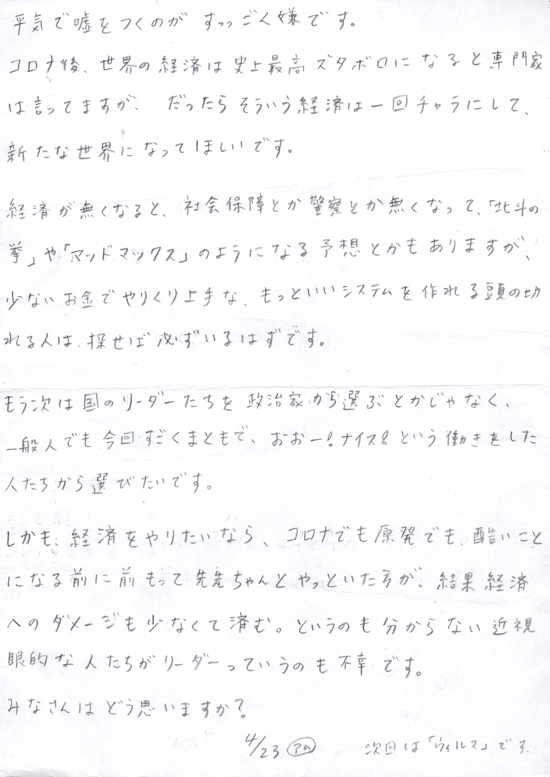 平気で嘘をつくのが すっっごく嫌です。
コロナ後、世界の経済は史上最高ズタボロになると専門家
は言ってますが、 だったらそういう経済は一回チャラにして、
新たな世界になってほしいです。
経済が無くなると、社会保障とか警察とか無くなって、「北斗の
拳」や「マッドマックス」のようになる予想とかもありますが、
少ないお金でやりくり上手な、もっといいシステムを作れる頭の切
れる人は、探せば必ずいるはずです。
もう次は国のリーダーたちを政治家から選ぶとかじゃなく、
一般人でも今回すごくまともで、おおー!ナイス!という働きをした
人たちから選びたいです。
しかも、経済をやりたいなら、コロナでも原発でも、酷いこと
になる前に前もって先先ちゃんとやっといた方が、結果経済
へのダメージも少なくて済む。というのも分からない近視
眼的な人たちがリーダーっていうのも不幸です。
みなさんはどう思いますか?
4/23 次回は「ウィルス」です。